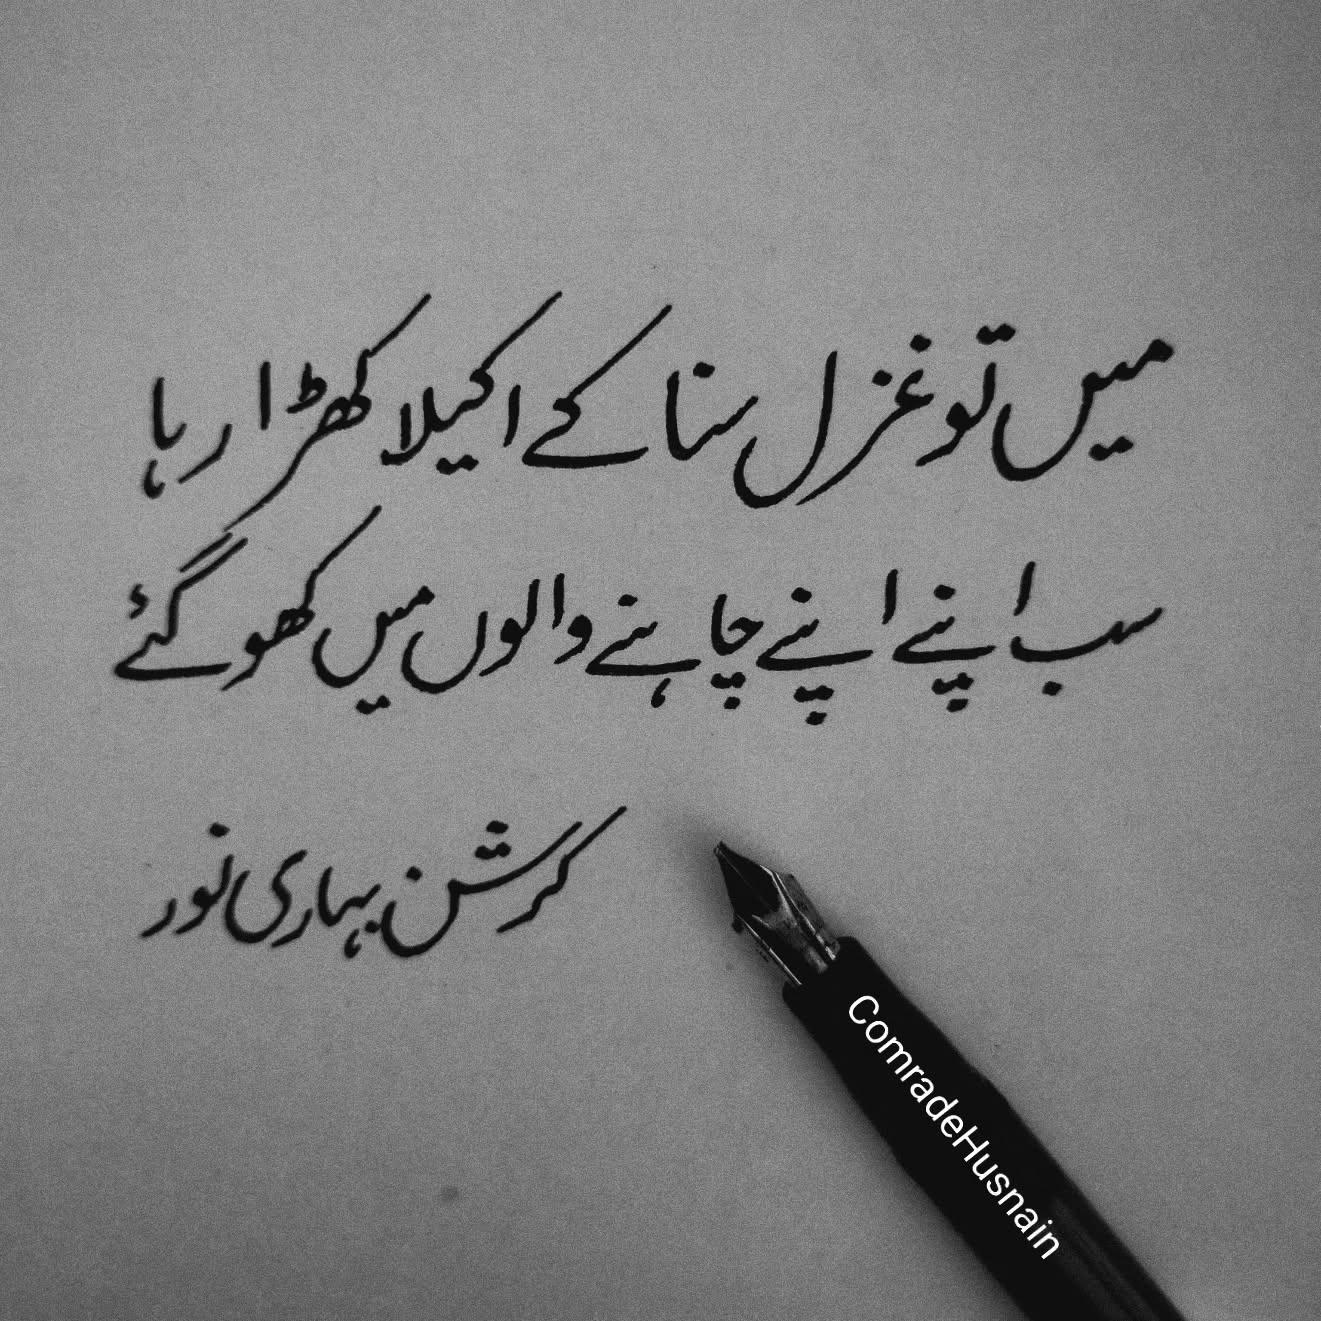 میں تو غزل سنا کے اکیلا کھڑا رہا
سب اپنے اپنے چاہنے والوں میں کھو گئے
کرشن بہاری نور
ComradeHusnain